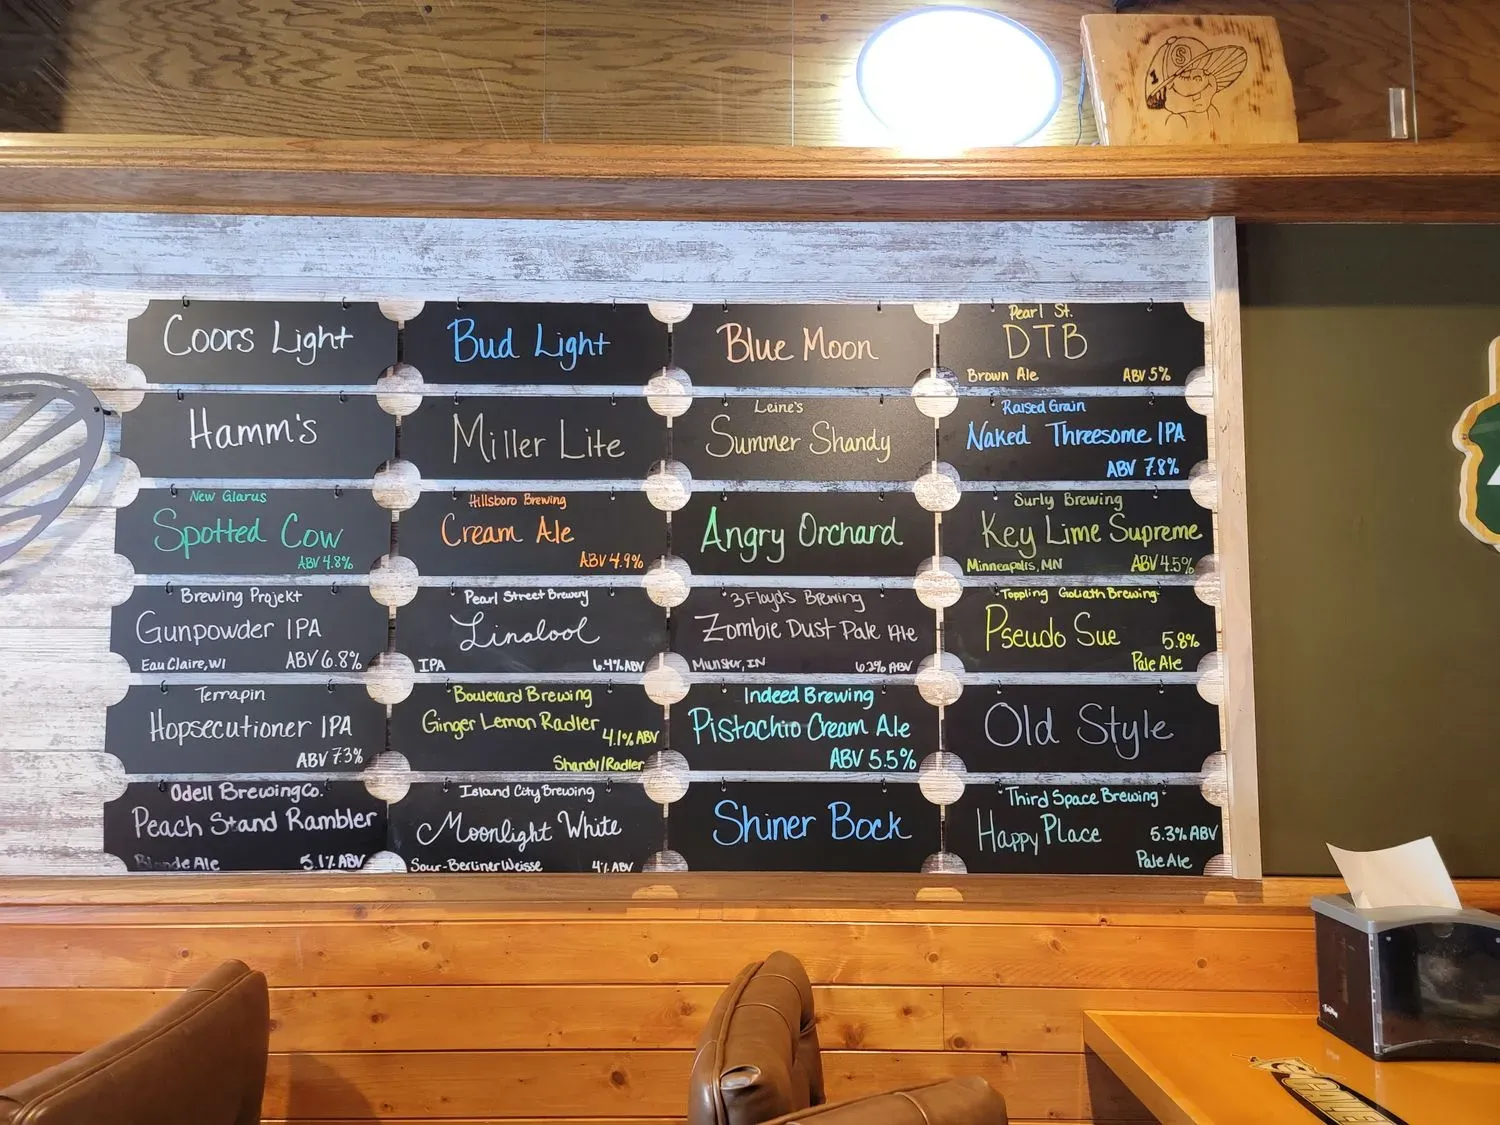 1 S
Coors Light
Bud Light
Blue Moon
Pearl St.
DTB
Brown Ale ABV 5%
Hamm's
Miller Lite
Leine's
Summer Shandy
Raised Grain
Naked Threesome IPA
ABV 7.8%
New Glarus
Spotted Cow
ABV 4.8%
Hillsboro Brewing
Cream Ale
ABV 4.9%
Angry Orchard
Surly Brewing
Key Lime Supreme
Minneapolis, MN ABV 4.5%
Brewing Projekt
Gunpowder IPA
Eau Claire, WI ABV 6.8%
Pearl Street Brewery
Linalool
IPA 6.4% ABV
3 Floyds Brewing
Zombie Dust Pale Ale
Munster, IN 6.2% ABV
Toppling Goliath Brewing
Pseudo Sue 5.8%
Pale Ale
Terrapin
Hopsecutioner IPA
ABV 7.3%
Boulevard Brewing
Ginger Lemon Radler
4.1% ABV
Shandy/Radler
Indeed Brewing
Pistachio Cream Ale
ABV 5.5%
Old Style
Odell Brewing Co.
Peach Stand Rambler
Blonde Ale 5.1% ABV
Island City Brewing
Moonlight White
Sour-Berliner Weisse 4% ABV
Shiner Bock
Third Space Brewing
Happy Place 5.3% ABV
Pale Ale